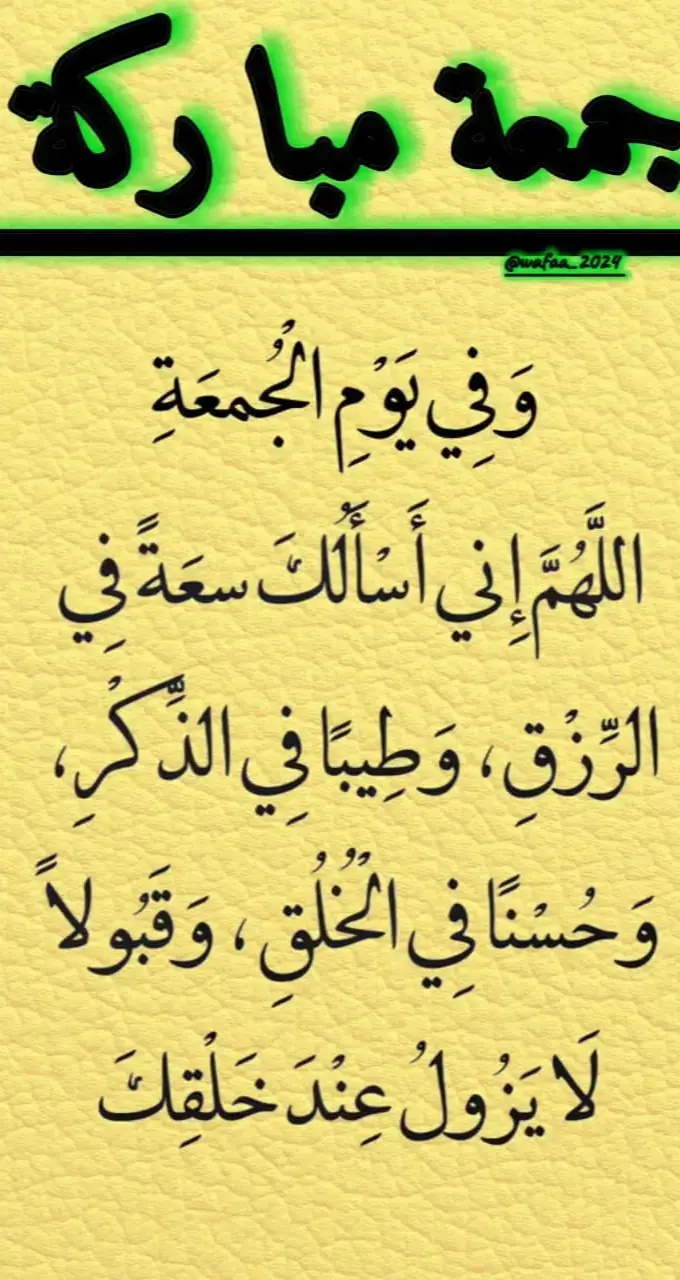 جمعة مباركة
@wafaa_2024
وَفِي يَوْمِ الْجُمعَةِ
اللَّهُمَّ إِني أَسْأَلُكَ سعَةً فِي
الرِّزْقِ، وَطِيبًا فِي الذِّكْرِ،
وَحُسْنًا فِي الْخُلُقِ، وَقَبُولاً
لَا يَزُولُ عِنْدَ خَلْقِكَ